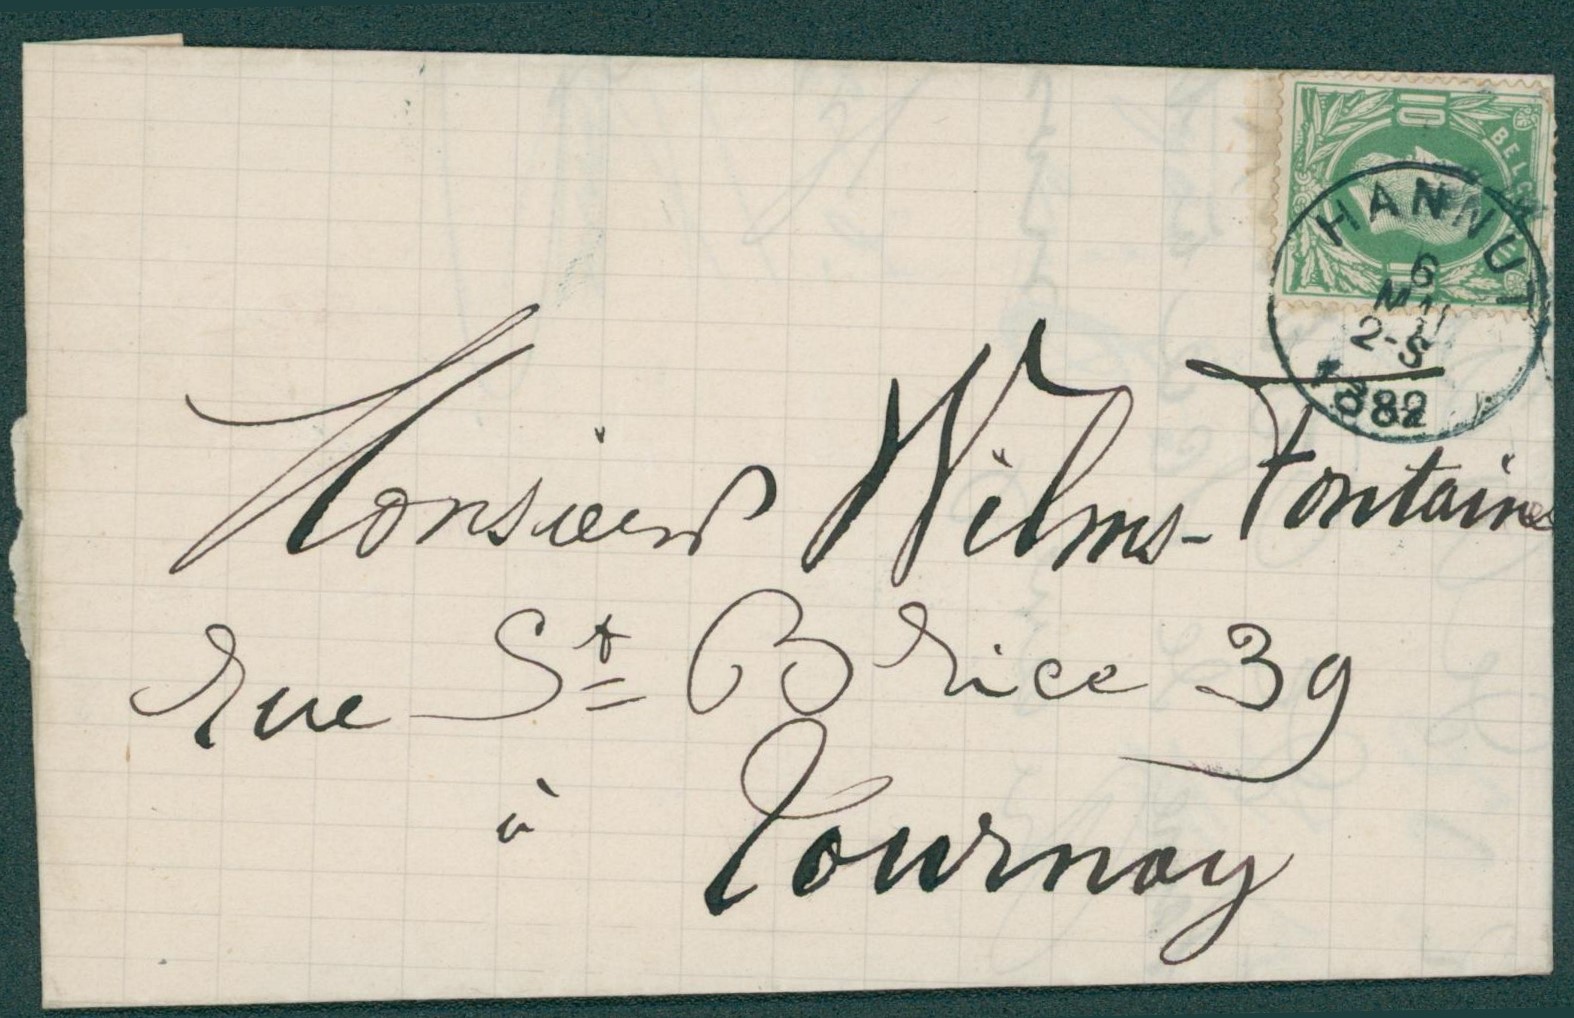 10
BELG
HANNUT
6
MAI
2-S
1882
Monsieur Wilms-Fontaine
rue St Brice 39
à Tournay